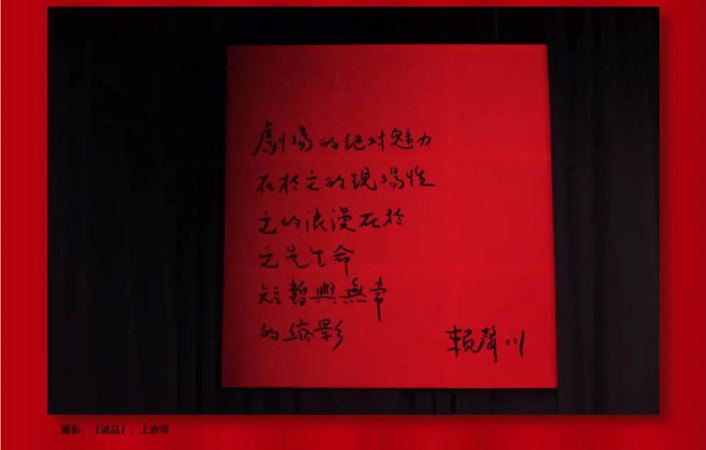 劇場的絕對魅力
在於它的現場性
它的浪漫在於
它是生命
短暫與無常
的縮影
賴聲川
摄影:【诚品】、上剧场